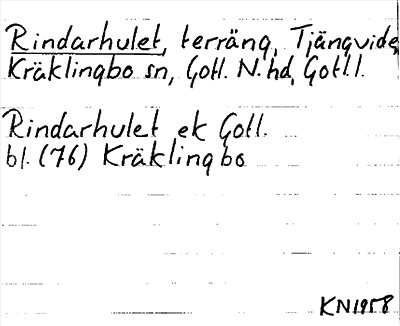 Rindarhulet, terräng, Tjängvide,
Kräklingbo sn, Gotl. N. hd, Gotl. l.
Rindarhulet ek Gotl.
bl. (76) Kräklingbo
KN1958